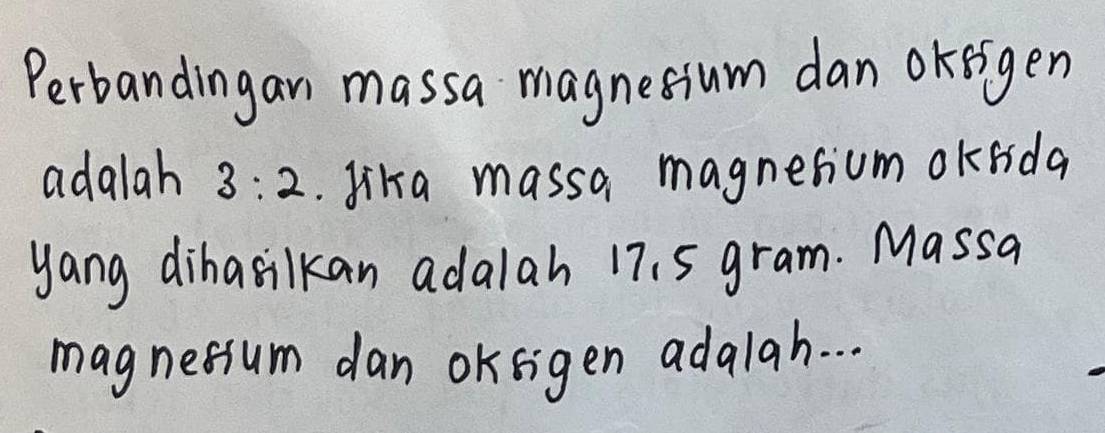 Perbandingan massa magnesium dan oksigen
adalah 3 : 2. Jika massa magnesium oksida
yang dihasilkan adalah 17,5 gram. Massa
magnesium dan oksigen adalah...